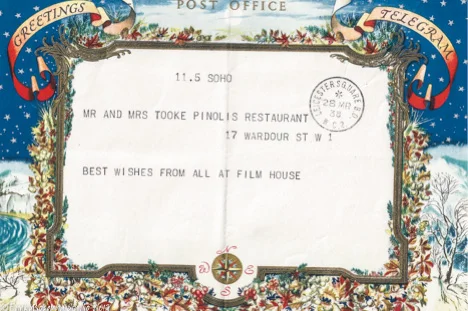 POST OFFICE
GREETINGS
TELEGRAM
11.5 SOHO
MR AND MRS TOOKE PINOLIS RESTAURANT
17 WARDOUR ST W 1
BEST WISHES FROM ALL AT FILM HOUSE
LEICESTER SQUARE B.O.
28 MR
38
W.C.2
N
W
E
S